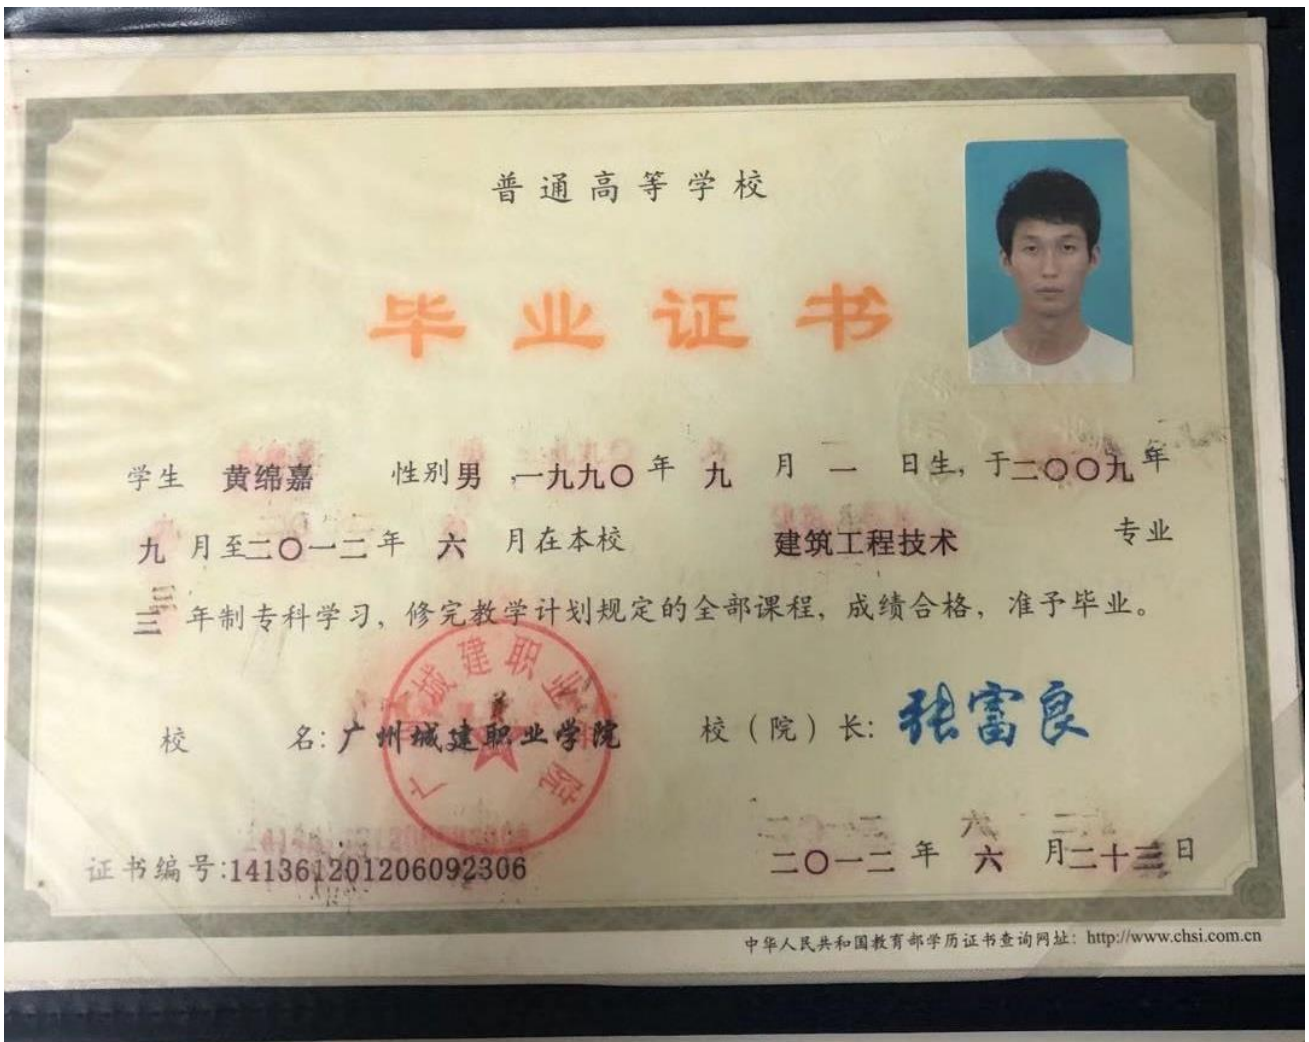 普通高等学校
毕业证书
学生 黄绵嘉 性别 男 ,一九九〇年 九 月 一 日生, 于二〇〇九年
九 月至二〇一二年 六 月在本校 建筑工程技术 专业
三 年制专科学习, 修完教学计划规定的全部课程, 成绩合格, 准予毕业。
校 名: 广州城建职业学院 校(院)长: 张富良
广州城建职业学院
二〇一二 年 六 月二十三日
证书编号:141361201206092306
中华人民共和国教育部学历证书查询网址: http://www.chsi.com.cn